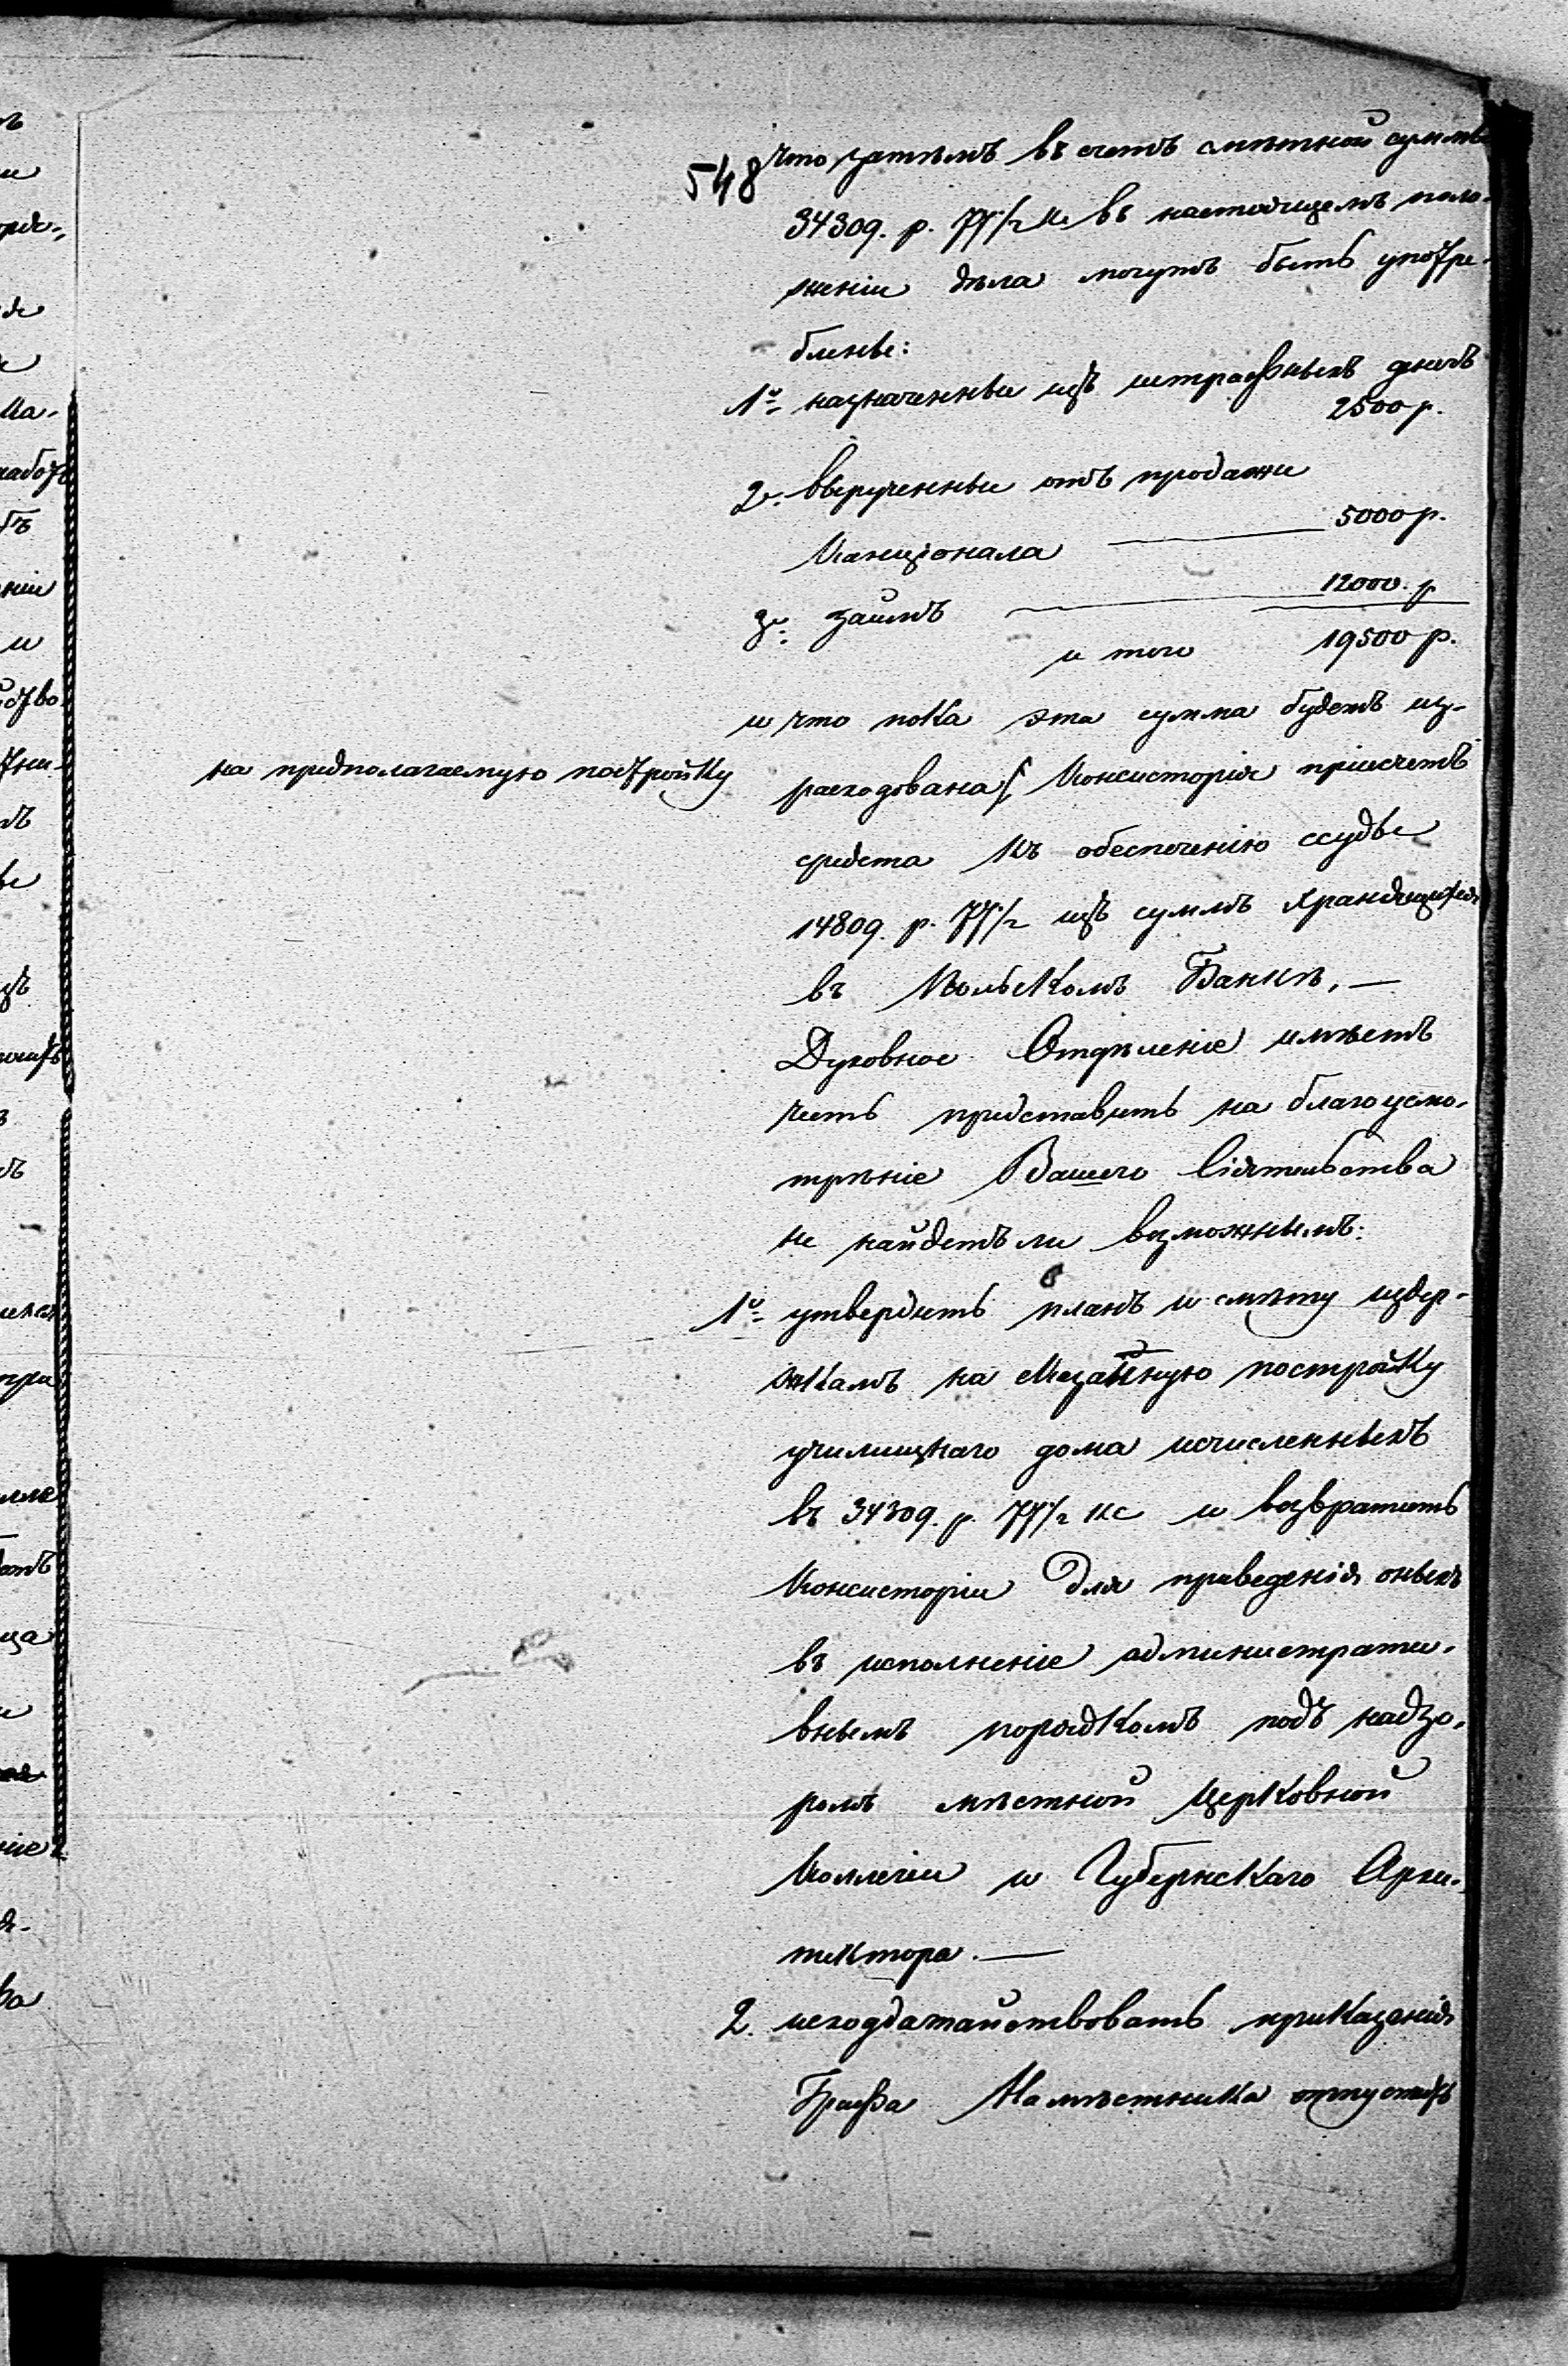 548
что затѣмъ въ счетъ смѣтной суммы
34309. р. 77 1/2 к. въ настоящемъ поло-
женіи дѣла могутъ быть употре-
блены:
1е назначенные изъ штрафныхъ денегъ
2500 р.
2е вырученные отъ продажи
Канціонала 5000 р.
3е: заимъ 12000. р
и того 19500 р.
и что пока эта сумма будетъ из-
расходована на предполагаемую постройку Консисторія пріищетъ
средства къ обеспеченію ссуды
14809. р. 77 1/2 изъ суммъ хранящихся
въ Польскомъ Банкѣ, —
Духовное Отдѣленіе имѣетъ
честь представить на благоусмо-
трѣніе Вашего Сіятельства
не найдетъ ли возможнымъ:
1е утвердить планъ и смѣту издер-
жкамъ на постройку
училищнаго дома исчисленныхъ
въ 34309. р. 77 1/2 кс и возвратить
Консисторіи для приведенія оныхъ
въ исполненіе администрати-
внымъ порядкомъ подъ надзо-
ромъ мѣстной Церковной
Коллегіи и Губернскаго Архи-
тектора. —
2. исходатайствовать приказанія
Графа Намѣстника отпустить